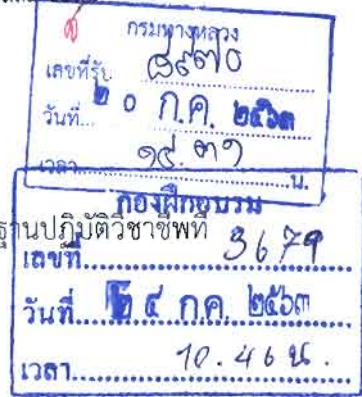 กรมทางหลวง
เลขที่รับ ๘๙๗๐
วันที่ ๒๐ ก.ค. ๒๕๖๓
เวลา ๑๔.๓๑ น.
กองฝึกอบรม
ฐานปฏิบัติวิชาชีพที่
เลขที่ 3679
วันที่ ๒๔ ก.ค. ๒๕๖๓
เวลา 10.46 น.